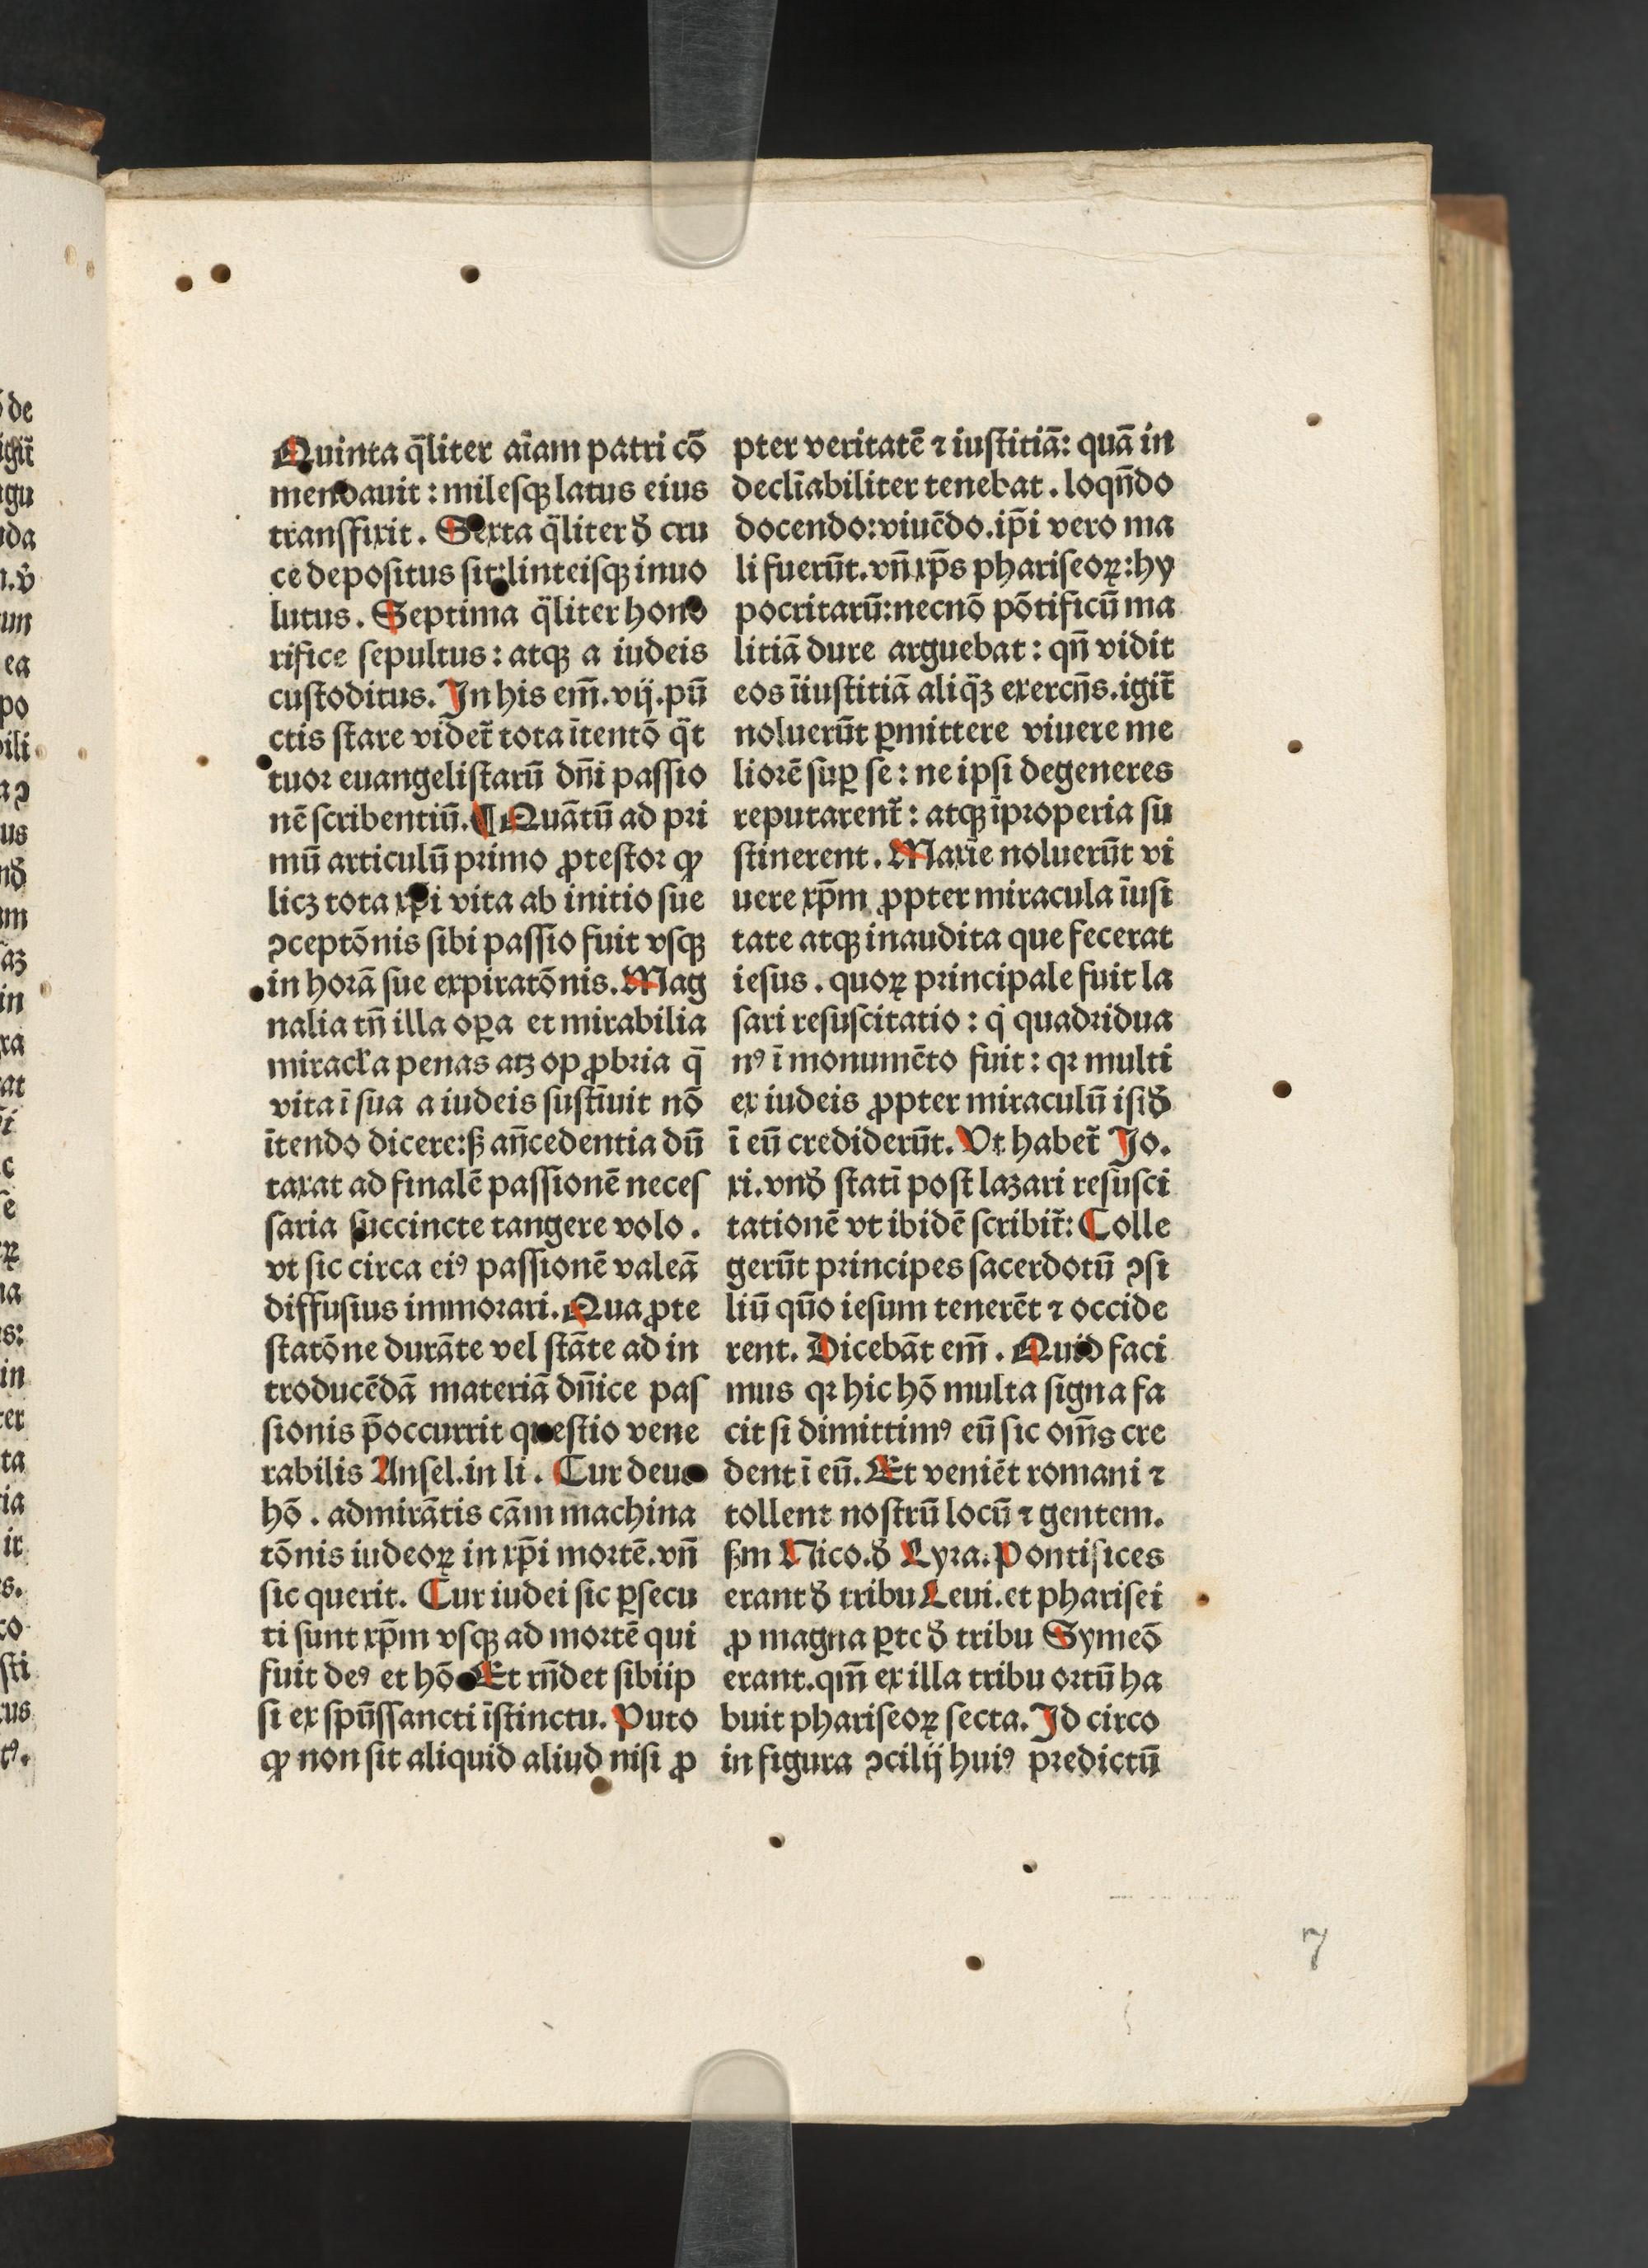 Quinta q̄liter aīam patri cō
mendauit : milesqꝫ latus eius
transfixit . Sexta q̄liter ꝺ̄ cru
ce depositus sit:linteisqꝫ inuo
lutus . Septima q̄liter hono
rifice sepultus : atqꝫ a iudeis
custoditus. In his em̄. vij. pū
ctis stare videt̄ tota ītentō q̄t
tuor euangelistarū dn̄i passio
nē scribentiū. ¶ Quātū ad pri
mū articulū primo ꝓtestor ꝙ
licꝫ tota xp̄i vita ab initio sue
ↄceptōnis sibi passio fuit vsqꝫ
in horā sue expiratōnis. Mag
nalia tn̄ illa oꝑa et mirabilia
miracl̄a penas atꝫ opꝓbria q̄
vita ī sua a iudeis sustīuit nō
ītendo dicere:sꝫ an̄cedentia dū
taxat ad finalē passionē neces
saria succincte tangere volo .
vt sic circa eiꝰ passionē valeā
diffusius immorari. Qua ꝓte
statōne durāte vel stāte ad in
troducēdā materiā dn̄ice pas
sionis p̄occurrit questio vene
rabilis Ansel. in li . Cur deus
hō . admirātis cām machina
tōnis iudeoꝝ in xp̄i mortē. vn̄
sic querit. Cur iudei sic ꝑsecu
ti sunt xp̄m vsqꝫ ad mortē qui
fuit deꝰ et hō Et rn̄det sibiip
si ex spūssancti īstinctu. Puto
ꝙ non sit aliquid aliud nisi ꝓ
pter veritatē ⁊ iustitiā: quā in
declīabiliter tenebat . loqn̄do
docendo: viuēdo. ip̄i vero ma
li fuerūt. vn̄ xp̄s phariseoꝝ: hy
pocritarū: necnō pōtificū ma
litiā dure arguebat : qn̄ vidit
eos īiustitiā aliq̄ꝫ exercn̄s. igit̄
noluerūt ꝑmittere viuere me
liorē suꝑ se : ne ipsi degeneres
reputarent̄ : atqꝫ īproperia su
stinerent . Maxīe noluerūt vi
uere xp̄m ꝓpter miracula īusi
tate atqꝫ inaudita que fecerat
iesus . quoꝝ principale fuit la
sari resuscitatio : q̇ quadridua
nꝰ ī monumēto fuit : qꝛ multi
ex iudeis ꝓpter miraculū isiꝺ̄
ī eū crediderūt. Vt habet̄ Jo.
xi. vnꝺ̄ statī post lazari resusci
tationē vt ibidē scribit̄: Colle
gerūt principes sacerdotū ↄsi
liū quo iesum tenerēt ⁊ occide
rent. Dicebāt em̄ . Quid faci
mus qꝛ hic hō multa signa fa
cit si dimittimꝰ eū sic om̄s cre
dent ī eū. Et veniēt romani ⁊
tollent nostrū locū ⁊ gentem.
sꝫm Nico. ꝺ̄ Lyra. Pontifices
erant ꝺ̄ tribu Leui. et pharisei
ꝓ magna ꝑte ꝺ̄ tribu Symeō
erant. qm̄ ex illa tribu ortū ha
buit phariseoꝝ secta. Id circo
in figura ↄcilij huiꝰ predictū
7